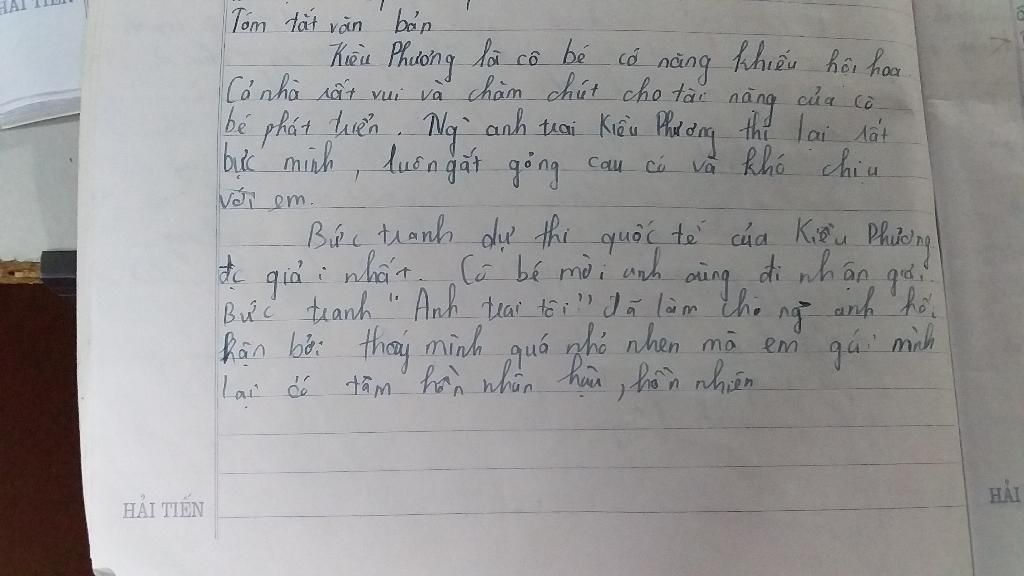 Tóm tắt văn bản
Kiều Phương là cô bé có năng khiếu hội hoạ.
Cả nhà rất vui và chăm chút cho tài năng của cô
bé phát triển. Ng` anh trai Kiều Phương thì lại rất
bực mình, luôn gắt gỏng cau có và khó chịu
với em.
Bức tranh dự thi quốc tế của Kiều Phương
đc giải nhất. Cô bé mời anh cùng đi nhận giải.
Bức tranh "Anh trai tôi" đã làm cho ng` anh hối
hận bởi thấy mình quá nhỏ nhen mà em gái mình
lại có tâm hồn nhân hậu, hồn nhiên
HẢI TIẾN
HẢI